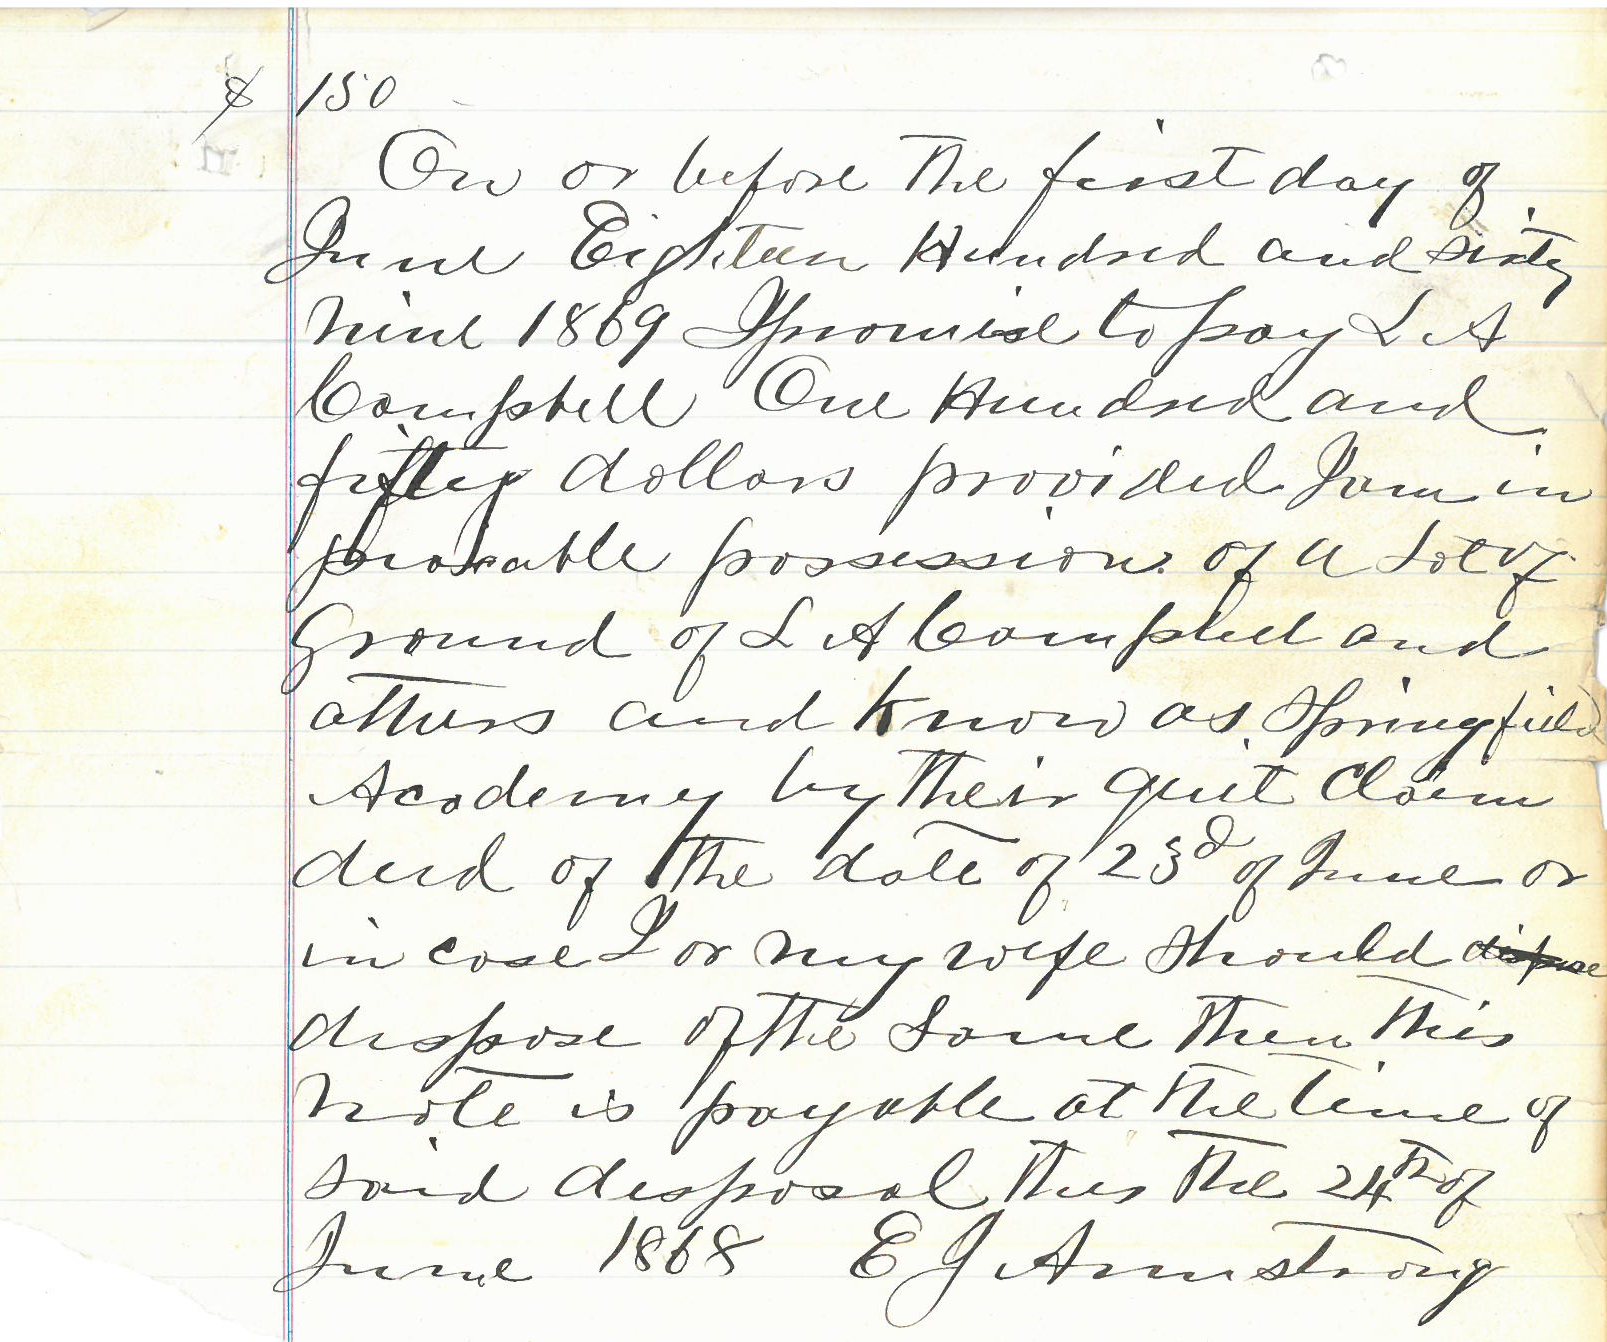 $ 150
On or before the first day of
June Eighteen Hundred and sixty
nine 1869 I promise to pay L A
Campbell One Hundred and
fifty dollars provided I am in
peaceable possession of a Lot of
Ground of L A Campbell and
others and know as Springfield
Academy by their quit Claim
deed of the date of 23d of June or
in case I or my wife should dispose
dispose of the Same then this
note is payable at the time of
said disposal this the 24th of
June 1868 E J Armstrong